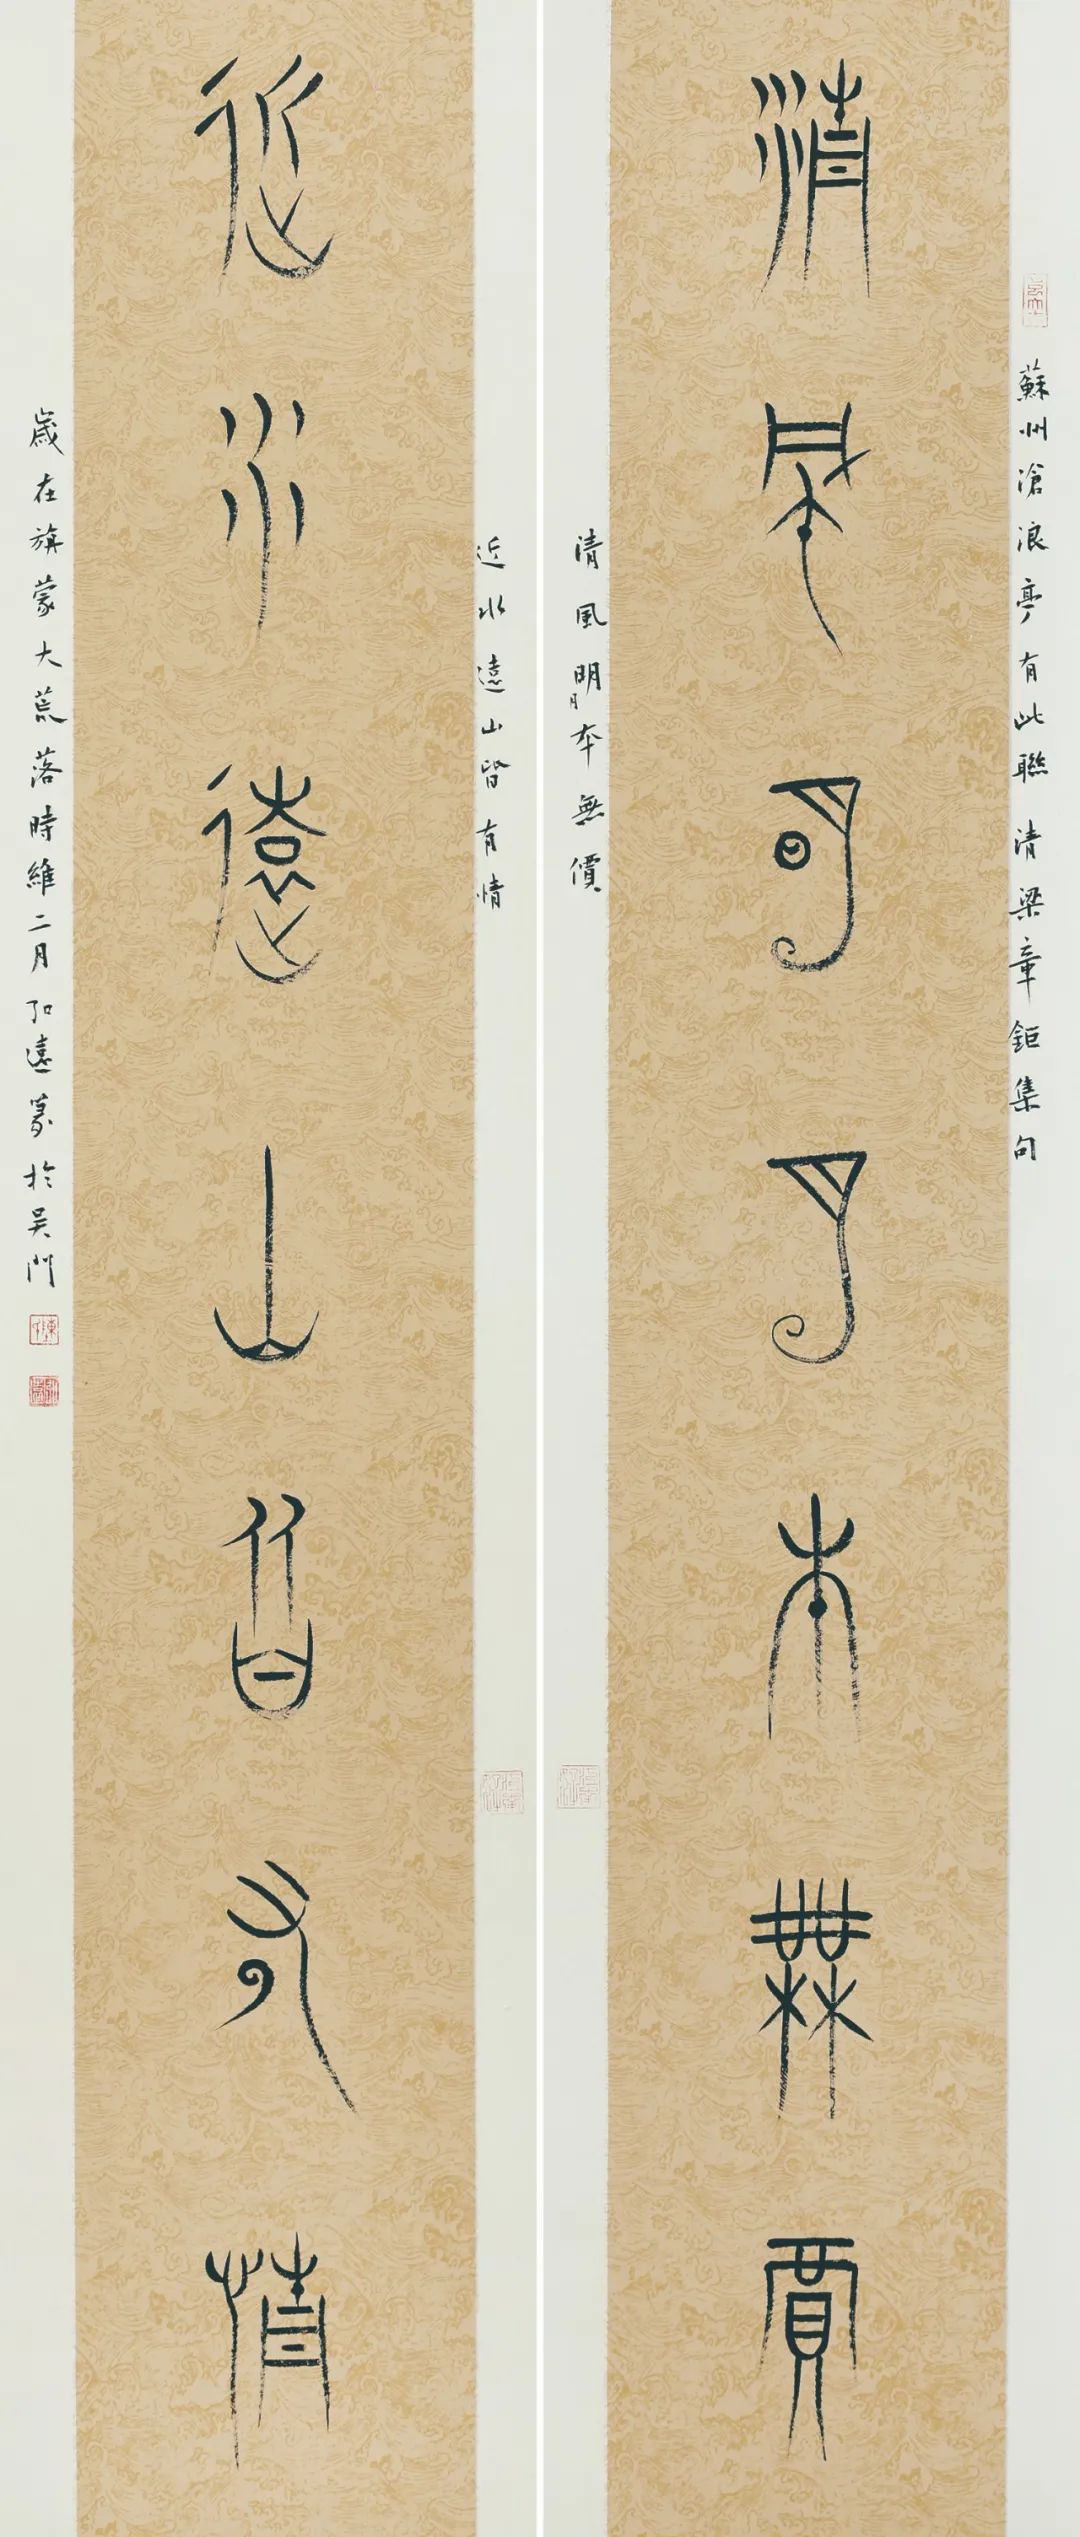 蘇州滄浪亭有此聯 清梁章鉅集句
清風明月本無價
清風明月本無價
近水遠山皆有情
近水遠山皆有情
歲在旃蒙大荒落時維二月弘遠篆於吳門